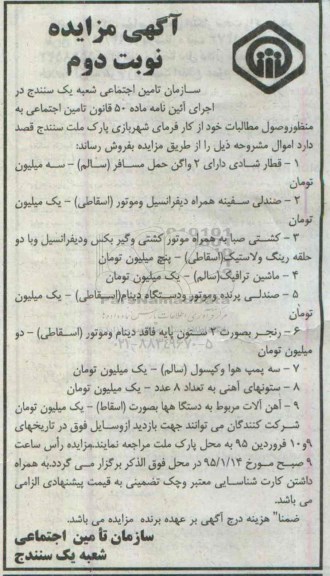 آگهی مزایده
نوبت دوم
سازمان تامین اجتماعی شعبه یک سنندج در
اجرای آئین نامه ماده ۵۰ قانون تامین اجتماعی به
منظوروصول مطالبات خود از کار فرمای شهربازی پارک ملت سنندج قصد
دارد اموال مشروحه ذیل را از طریق مزایده بفروش رساند:
۱ - قطار شادی دارای ۲ واگن حمل مسافر (سالم) - سه میلیون
تومان
۲ - صندلی سفینه همراه دیفرانسیل وموتور (اسقاطی) - یک میلیون
تومان
۳ - کشتی صبا به همراه موتور کشتی وگیر بکس ودیفرانسیل وبا دو
حلقه رینگ ولاستیک(اسقاطی) - پنج میلیون تومان
۴ - ماشین ترافیک(سالم) - یک میلیون تومان
۵ - صندلی پرنده وموتور ودستگاه دینام(اسقاطی) - یک میلیون
تومان
۶ - رنجر بصورت ۲ ستون پایه فاقد دینام وموتور (اسقاطی) - دو
میلیون تومان
۰۲۱-۸۸۳۴۹۶۷۰-۵
۷ - سه پمپ هوا وکپسول (سالم) - یک میلیون تومان
۸ - ستونهای آهنی به تعداد ۸ عدد - یک میلیون تومان
۹ - آهن آلات مربوط به دستگا هها بصورت (اسقاط) - یک میلیون تومان
شرکت کنندگان می توانند جهت بازدید ازوسایل فوق در تاریخهای
۹و۱۰ فروردین ۹۵ به محل پارک ملت مراجعه نمایند.مزایده رأس ساعت
۹ صبح مورخ ۹۵/۱/۱۴ در محل فوق الذکر برگزار می گردد.به همراه
داشتن کارت شناسایی معتبر وچک تضمینی به قیمت پیشنهادی الزامی
می باشد.
ضمنا" هزینه درج آگهی بر عهده برنده مزایده می باشد.
سازمان تأمین اجتماعی
شعبه یک سنندج